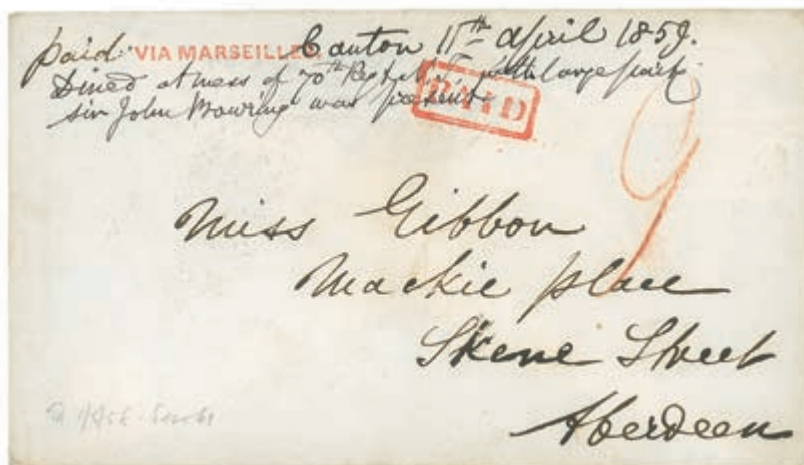 paid. VIA MARSEILLES Canton 11th april 1859.
Dined at mess of 70th Regt with large party
Sir John Bowring was present
PAID
9
Miss Gibbon
Mackie place
Skene Street
Aberdeen